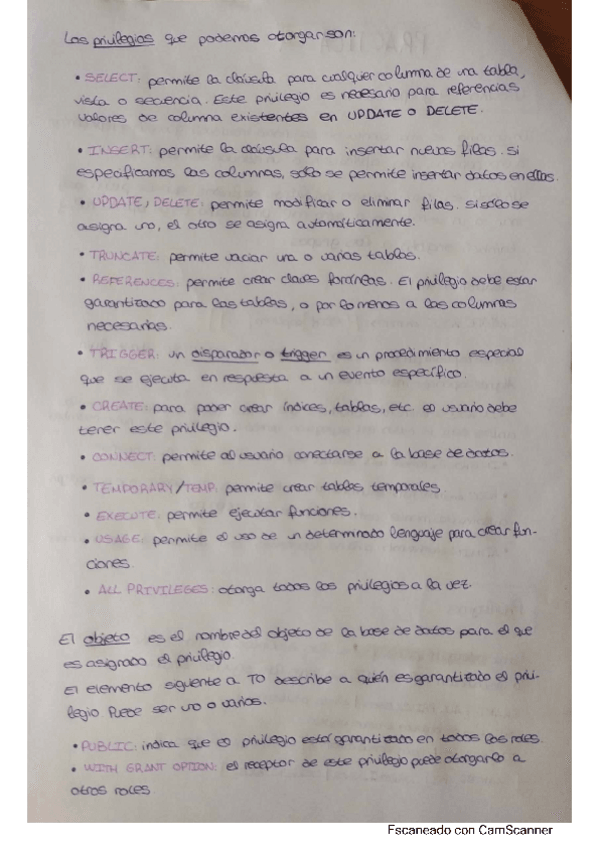 Los privilegios que podemos otorgar son:
• SELECT: permite la cláusula para cualquier columna de una tabla,
vista o secuencia. Este privilegio es necesario para referencias
valores de columna existentes en UPDATE o DELETE.
• INSERT: permite la cláusula para insertar nuevas filas. si
especificamos las columnas, solo se permite insertar datos en ellas.
• UPDATE, DELETE: permite modificar o eliminar filas. si solo se
asigna uno, el otro se asigna automáticamente.
• TRUNCATE: permite vaciar una o varias tablas.
• REFERENCES: permite crear claves foráneas. El privilegio debe estar
garantizado para las tablas, o por lo menos a las columnas
necesarias.
• TRIGGER: un disparador o trigger es un procedimiento especial
que se ejecuta en respuesta a un evento específico.
• CREATE: para poder crear índices, tablas, etc. el usuario debe
tener este privilegio.
• CONNECT: permite al usuario conectarse a la base de datos.
• TEMPORARY/TEMP: permite crear tablas temporales.
• EXECUTE: permite ejecutar funciones.
• USAGE: permite el uso de un determinado lenguaje para crear fun-
ciones.
• ALL PRIVILEGES: otorga todos los privilegios a la vez.
El objeto es el nombre del objeto de la base de datos para el que
es asignado el privilegio.
El elemento siguiente a TO describe a quién es garantizado el privi-
legio. Puede ser uno o varios.
• PUBLIC: indica que el privilegio está garantizado en todos los roles.
• WITH GRANT OPTION: el receptor de este privilegio puede otorgarlo a
otros roles
Escaneado con CamScanner